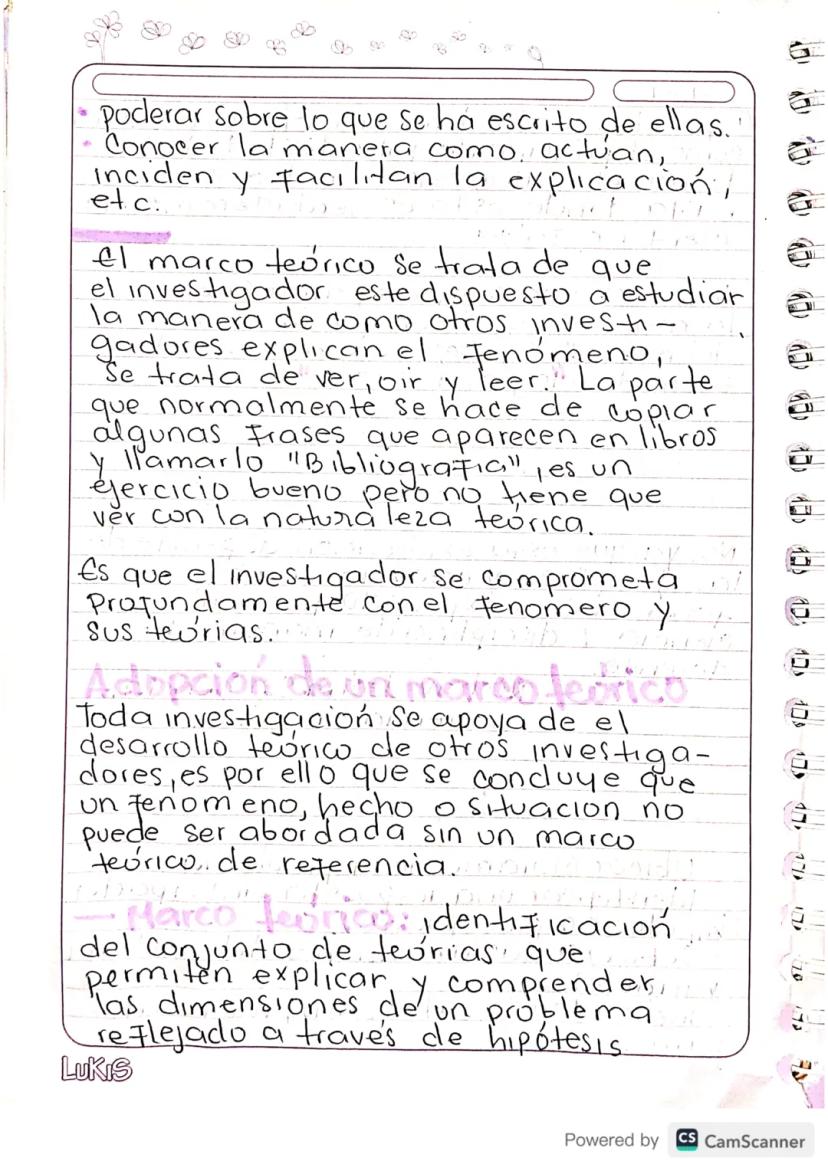 • poderar sobre lo que se ha escrito de ellas.
• Conocer la manera como actúan,
inciden y facilitan la explicación,
etc.
El marco teórico se trata de que
el investigador este dispuesto a estudiar
la manera de como otros investi-
gadores explican el fenómeno,
se trata de "ver, oir y leer." La parte
que normalmente se hace de copiar
algunas frases que aparecen en libros
y llamarlo "Bibliografia", es un
ejercicio bueno pero no tiene que
ver con la naturaleza teórica.
Es que el investigador se comprometa
profundamente con el fenomero y
sus teórias.
Adopción de un marco teórico
Toda investigación se apoya de el
desarrollo teórico de otros investiga-
dores, es por ello que se concluye que
un fenomeno, hecho o situacion no
puede ser abordada sin un marco
teórico de referencia.
— Marco teórico: identificación
del conjunto de teórias que
permiten explicar y comprender
las dimensiones de un problema
reflejado a través de hipótesis
LUKIS
Powered by CS CamScanner